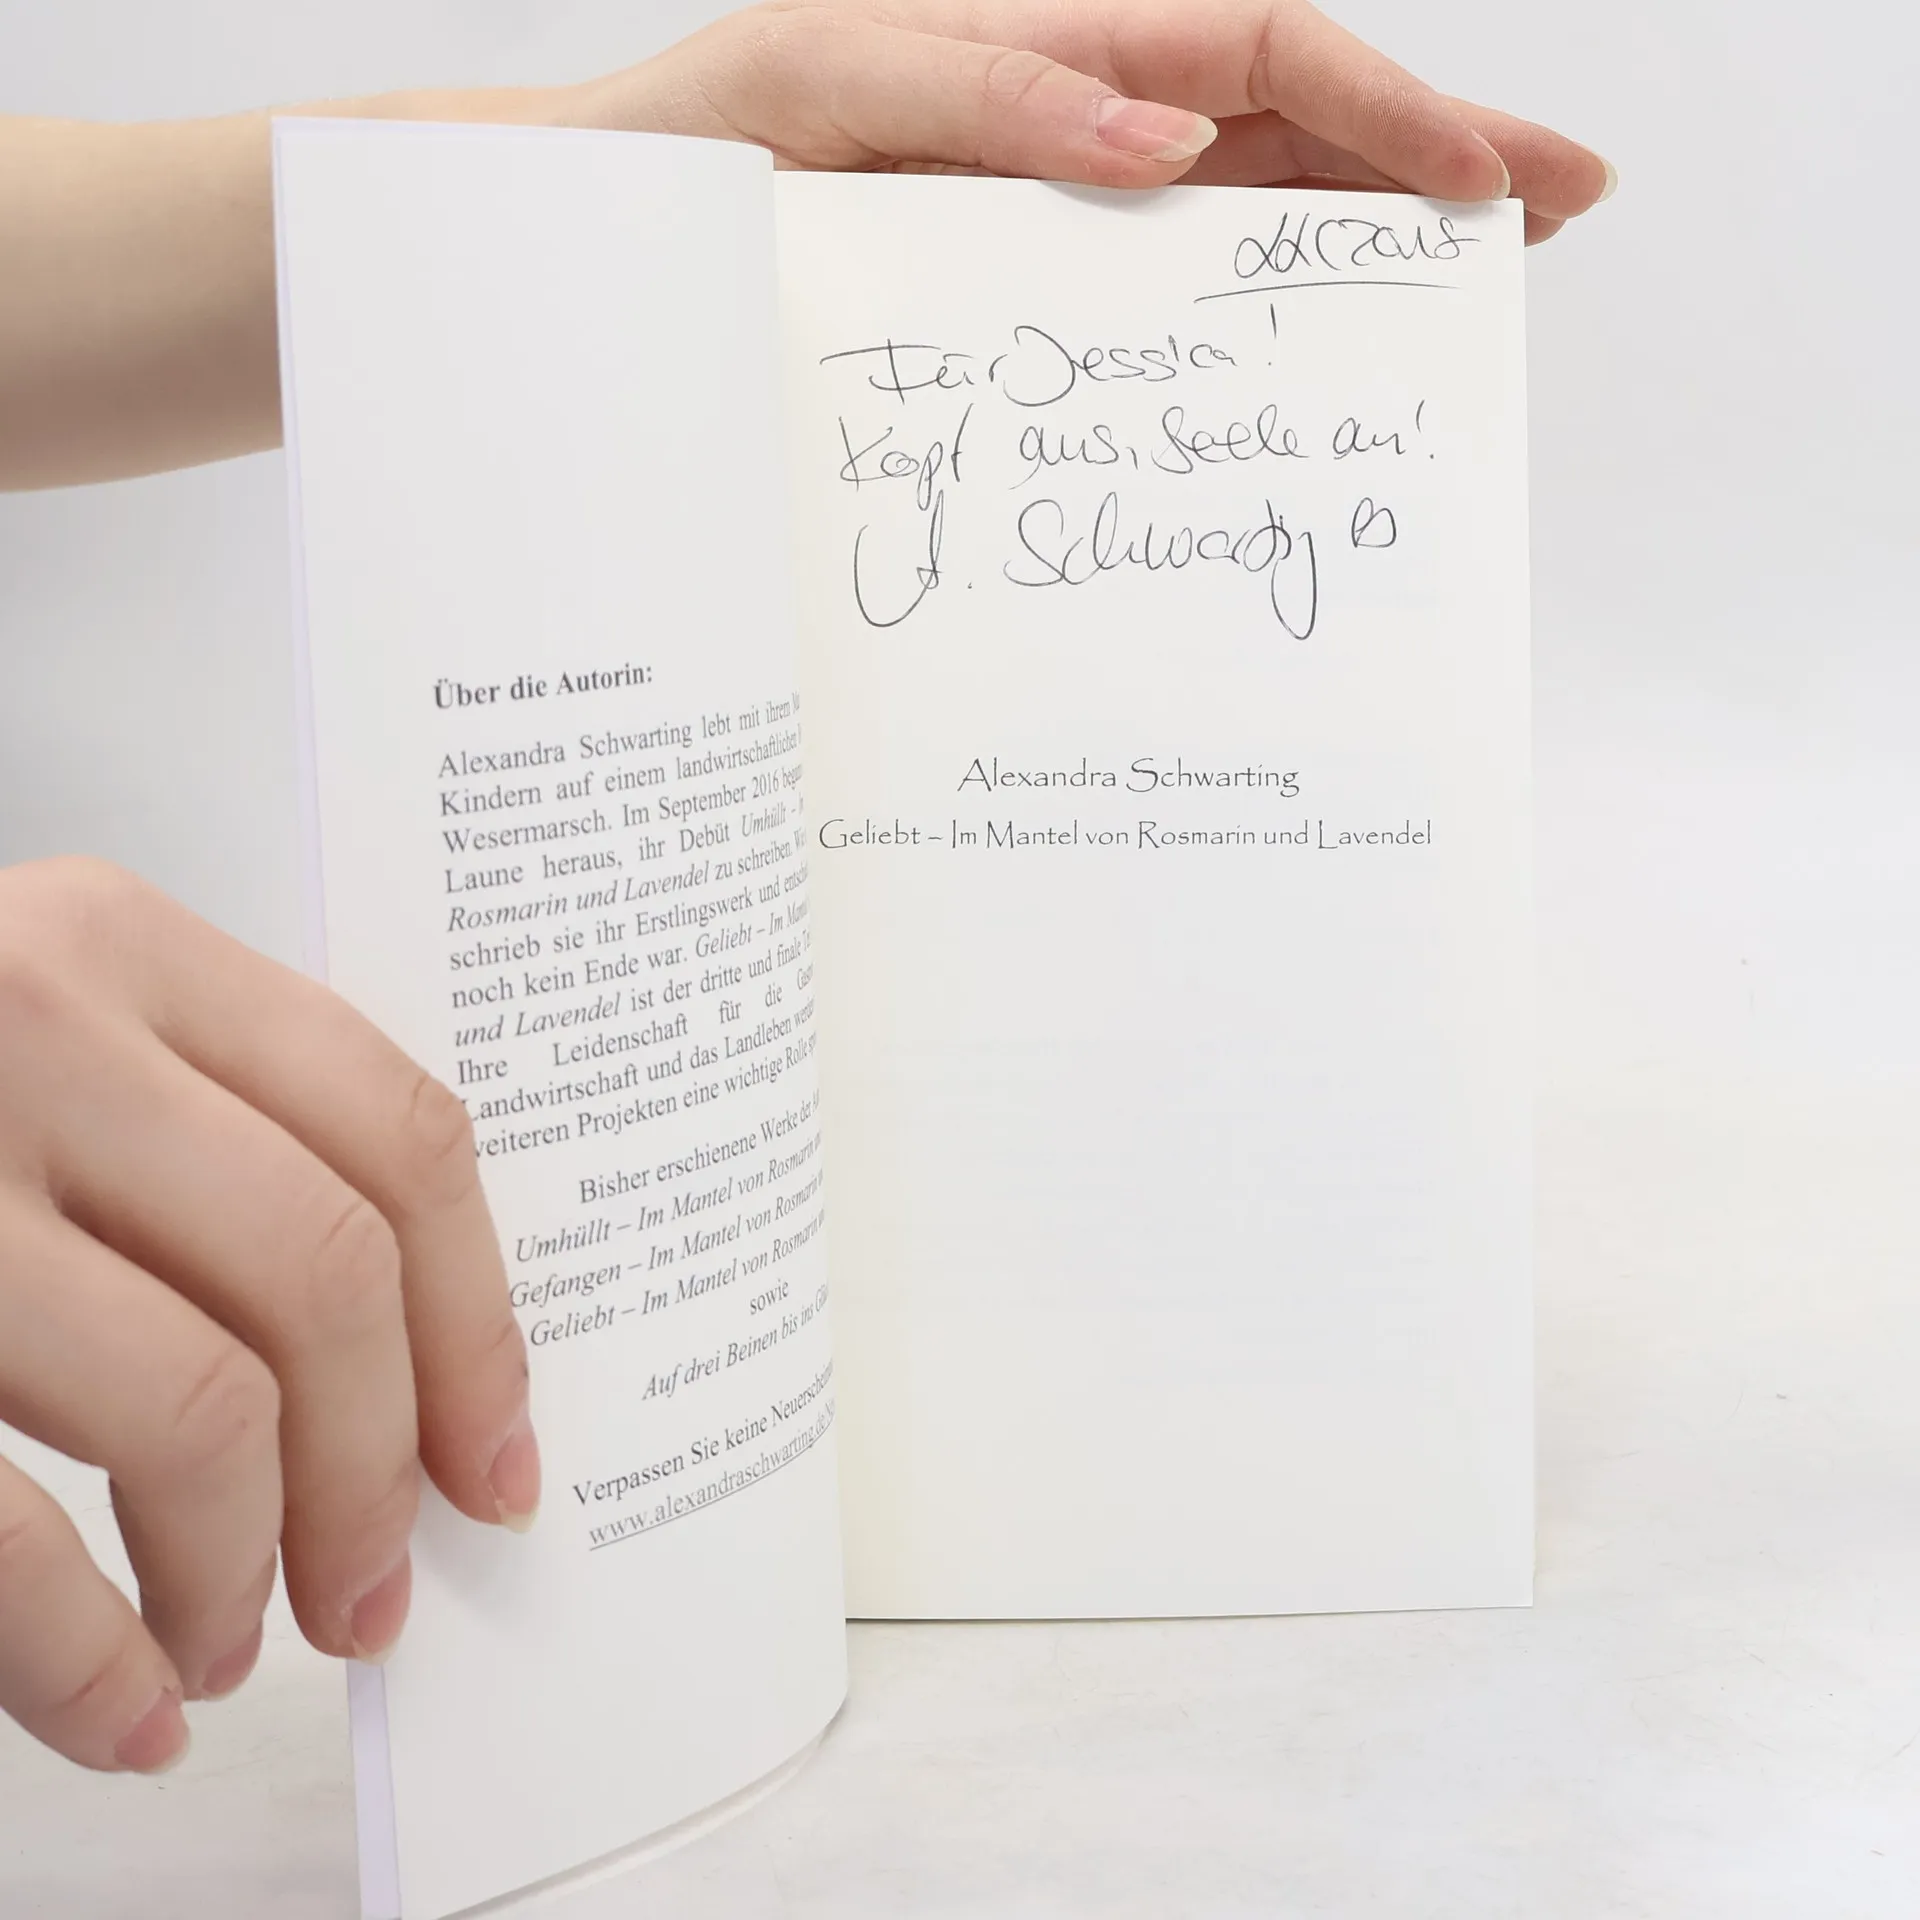 Über die Autorin:
Alexandra Schwarting lebt mit ihrem
Kindern auf einem landwirtschaftlichen
Wesermarsch. Im September 2016
Laune heraus, ihr Debüt Umhüllt –
Rosmarin und Lavendel zu schreiben.
schrieb sie ihr Erstlingswerk und
noch kein Ende war. Geliebt – Im
und Lavendel ist der dritte und finale
Ihre Leidenschaft für die
Landwirtschaft und das Landleben
weiteren Projekten eine wichtige Rolle
Bisher erschienene Werke der
Umhüllt – Im Mantel von Rosmarin
Gefangen – Im Mantel von Rosmarin
Geliebt – Im Mantel von Rosmarin
sowie
Auf drei Beinen bis ins
Verpassen Sie keine
www.alexandraschwarting.de/
Für Jessica!
Kopf aus, Seele an!
A. Schwarting
Alexandra Schwarting
Geliebt – Im Mantel von Rosmarin und Lavendel